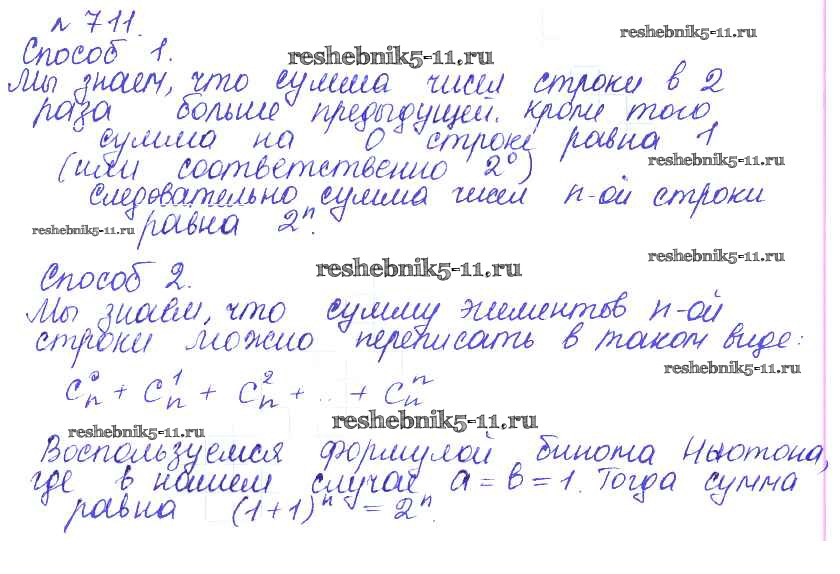 № 711.
reshebnik5-11.ru
Способ 1.
reshebnik5-11.ru
Мы знаем, что сумма чисел строки в 2
раза больше предыдущей. Кроме того
сумма на 0 строке равна 1
reshebnik5-11.ru
(или соответственно 2⁰)
следовательно сумма чисел n-ой строки
reshebnik5-11.ru равна 2ⁿ.
reshebnik5-11.ru
Способ 2.
reshebnik5-11.ru
Мы знаем, что сумму элементов n-ой
строки можно переписать в таком виде:
reshebnik5-11.ru
Cₙ⁰ + Cₙ¹ + Cₙ² + ... + Cₙⁿ
reshebnik5-11.ru
reshebnik5-11.ru
Воспользуемся формулой бинома Ньютона,
где в нашем случае a = b = 1. Тогда сумма
равна (1+1)ⁿ = 2ⁿ.